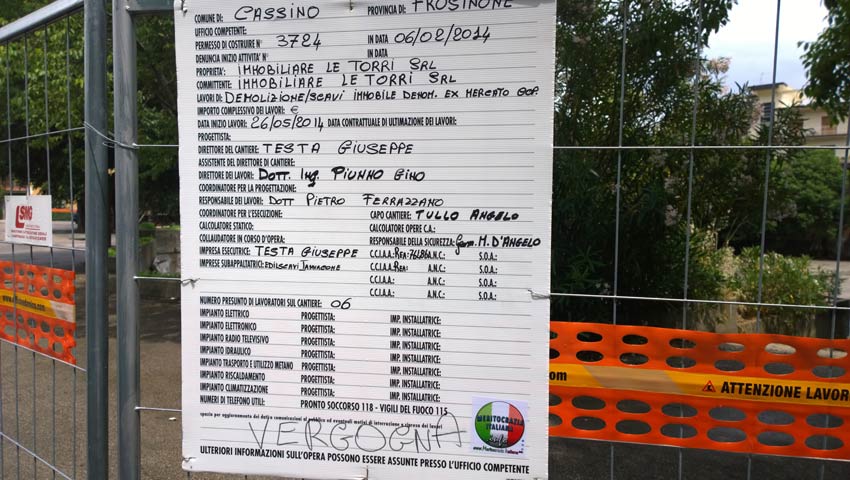 COMUNE DI: CASSINO PROVINCIA DI: FROSINONE
UFFICIO COMPETENTE:
PERMESSO DI COSTRUIRE N° 3724 IN DATA 06/02/2014
DENUNCIA INIZIO ATTIVITA' N° IN DATA
PROPRIETA': IMMOBILIARE LE TORRI SRL
COMMITTENTE: IMMOBILIARE LE TORRI SRL
LAVORI DI: DEMOLIZIONE/SCAVI IMMOBILE DENOM. EX MERCATO COP.
IMPORTO COMPLESSIVO DEI LAVORI: €
DATA INIZIO LAVORI: 26/05/2014 DATA CONTRATTUALE DI ULTIMAZIONE DEI LAVORI:
PROGETTISTA:
DIRETTORE DEL CANTIERE: TESTA GIUSEPPE
ASSISTENTE DEL DIRETTORE DI CANTIERE:
DIRETTORE DEI LAVORI: DOTT. Ing PIUNNO GINO
COORDINATORE PER LA PROGETTAZIONE:
RESPONSABILE DEI LAVORI: DOTT PIETRO FERRAZZANO
COORDINATORE PER L'ESECUZIONE: CAPO CANTIERE: TULLO ANGELO
CALCOLATORE STATICO: CALCOLATORE OPERE C.A.:
COLLAUDATORE IN CORSO D'OPERA: RESPONSABILE DELLA SICUREZZA: Geom. M. D'ANGELO
IMPRESA ESECUTRICE: TESTA GIUSEPPE C.C.I.A.A.: Rea: A.N.C.: S.O.A.:
IMPRESE SUBAPPALTATRICI: EDILSCAVI C.C.I.A.A.: Rea: A.N.C.: S.O.A.:
C.C.I.A.A.: A.N.C.: S.O.A.:
C.C.I.A.A.: A.N.C.: S.O.A.:
NUMERO PRESUNTO DI LAVORATORI SUL CANTIERE: 06
IMPIANTO ELETTRICO PROGETTISTA: IMP. INSTALLATRICE:
IMPIANTO ELETTRONICO PROGETTISTA: IMP. INSTALLATRICE:
IMPIANTO RADIO TELEVISIVO PROGETTISTA: IMP. INSTALLATRICE:
IMPIANTO IDRAULICO PROGETTISTA: IMP. INSTALLATRICE:
IMPIANTO TRASPORTO E UTILIZZO METANO PROGETTISTA: IMP. INSTALLATRICE:
IMPIANTO RISCALDAMENTO PROGETTISTA: IMP. INSTALLATRICE:
IMPIANTO CLIMATIZZAZIONE PROGETTISTA: IMP. INSTALLATRICE:
NUMERI DI TELEFONO UTILI: PRONTO SOCCORSO 118 - VIGILI DEL FUOCO 115
spazio per aggiornamento dei dati e comunicazioni al pubblico ed eventuali motivi di interruzione e ripresa dei lavori
VERGOGNA
MERITOCRAZIA
ITALIANA
ULTERIORI INFORMAZIONI SULL'OPERA POSSONO ESSERE ASSUNTE PRESSO L'UFFICIO COMPETENTE
.com
ATTENZIONE LAVORI